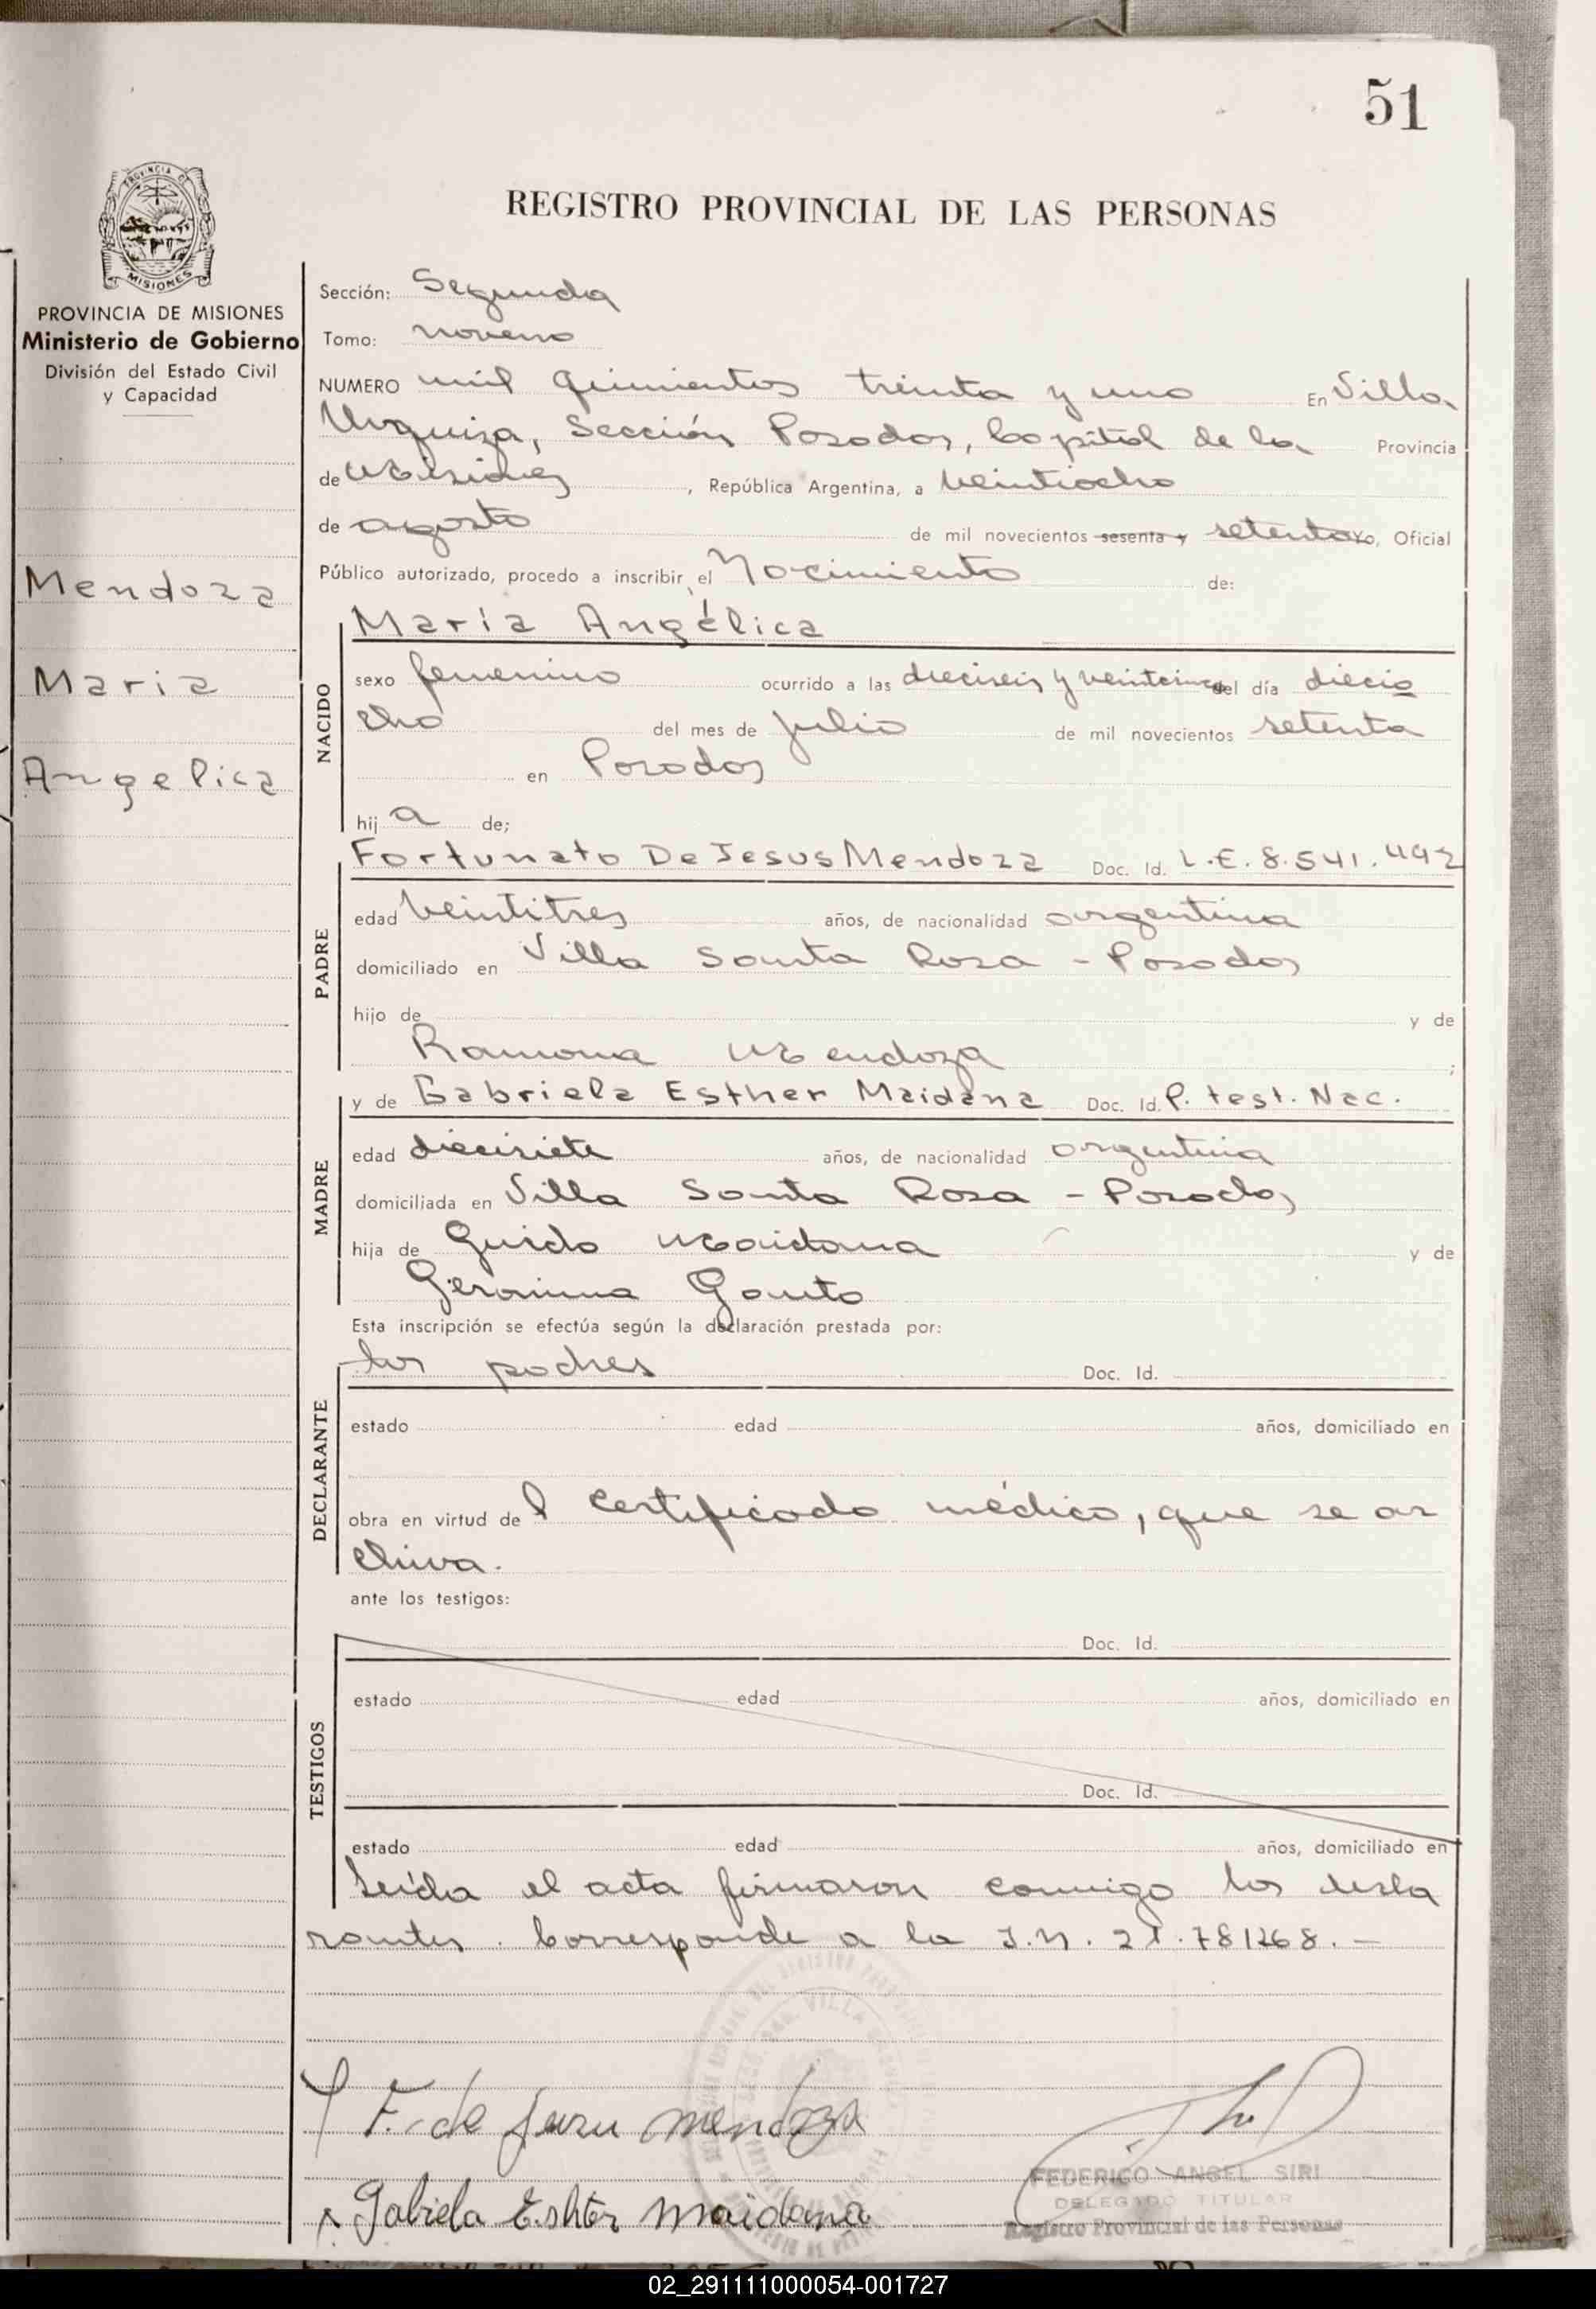 51
REGISTRO PROVINCIAL DE LAS PERSONAS
PROVINCIA DE MISIONES
Ministerio de Gobierno
División del Estado Civil
y Capacidad
Mendoza
Maria
Angelica
Sección: Segunda
Tomo: noveno
NUMERO mil quinientos treinta y uno En Villa
Urquiza, Sección Posadas, Capital de la Provincia
de Misiones, República Argentina, a veintiocho
de agosto de mil novecientos sesenta y setenta Yo, Oficial
Público autorizado, procedo a inscribir el Nacimiento de:
NACIDO
María Angélica
sexo femenino ocurrido a las dieciseis y veinticinco del día diecio
cho del mes de julio de mil novecientos setenta
en Posadas
hij a de;
PADRE
Fortunato De Jesus Mendoza Doc. Id. L.E. 8.541.492
edad veintitres años, de nacionalidad argentina
domiciliado en Villa Santa Rosa - Posadas
hijo de y de
Ramona Mendoza ;
MADRE
y de Gabriela Esther Maidana Doc. Id. P. test. Nac.
edad diecisiete años, de nacionalidad argentina
domiciliada en Villa Santa Rosa - Posadas
hija de Guido Maidana y de
Geronima Gauto
Esta inscripción se efectúa según la declaración prestada por:
DECLARANTE
los padres Doc. Id.
estado edad años, domiciliado en
obra en virtud de l certificado médico, que se ar
chiva.
ante los testigos:
TESTIGOS
Doc. Id.
estado edad años, domiciliado en
Doc. Id.
estado edad años, domiciliado en
Leída el acta firmaron conmigo los decla
rantes. Corresponde a la I.N. 21.781268.-
F. de Jesu mendoza
Gabiela Eshter maidana
FEDERICO ANGEL SIRI
DELEGADO TITULAR
Registro Provincial de las Personas
02_291111000054-001727